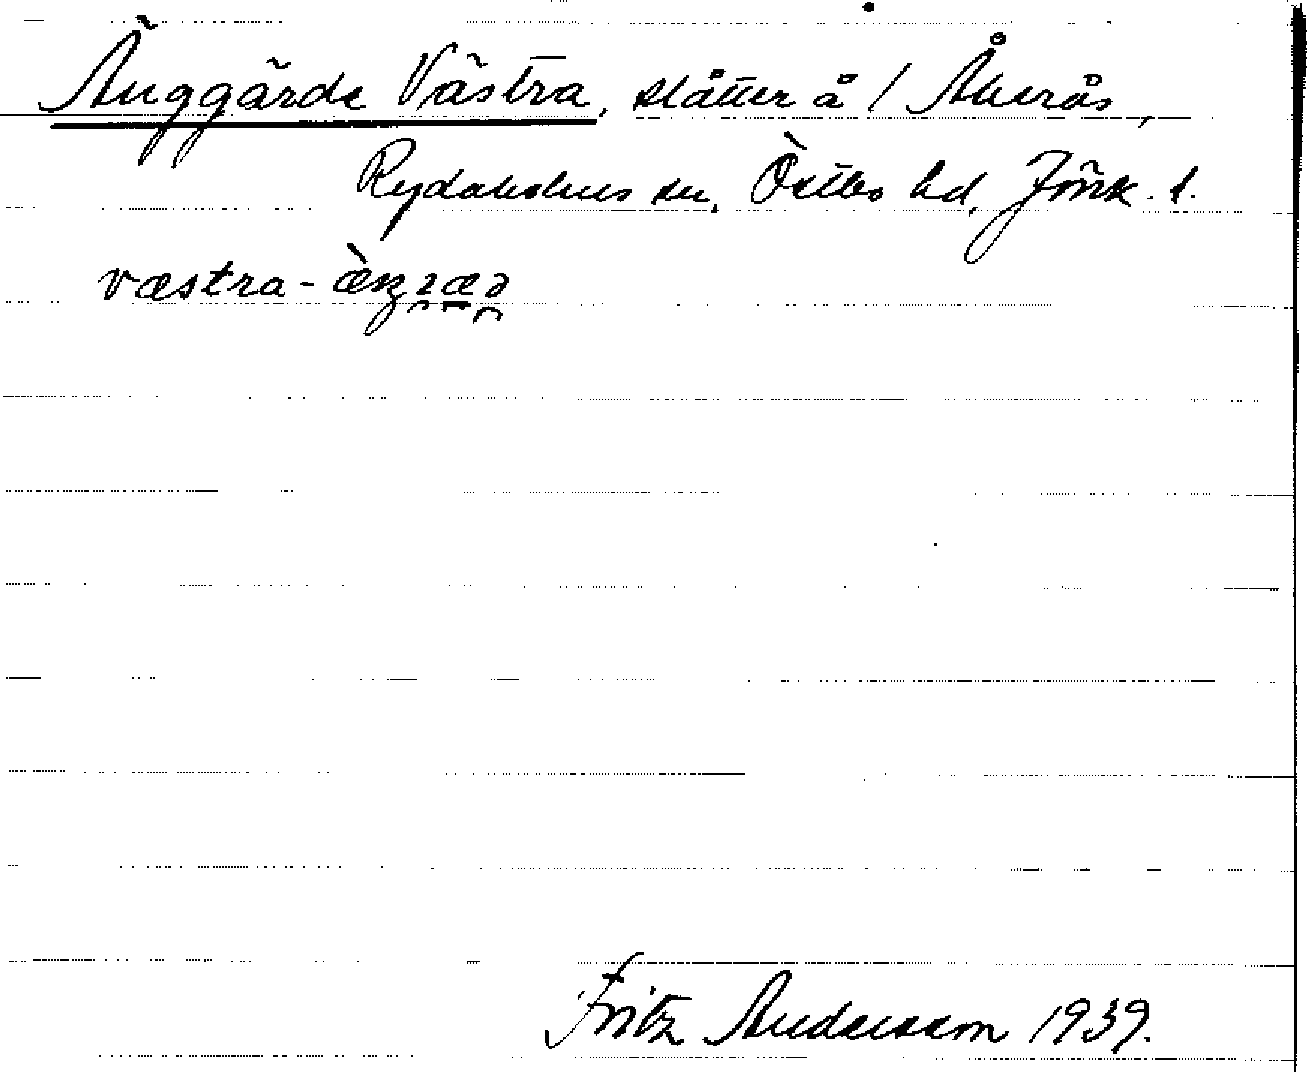 Änggärde Västra, slåtter å / Åkerås,
Rydaholms sn, Östbo hd, Jönk. l.
västra-
Fritz Andersson 1939.